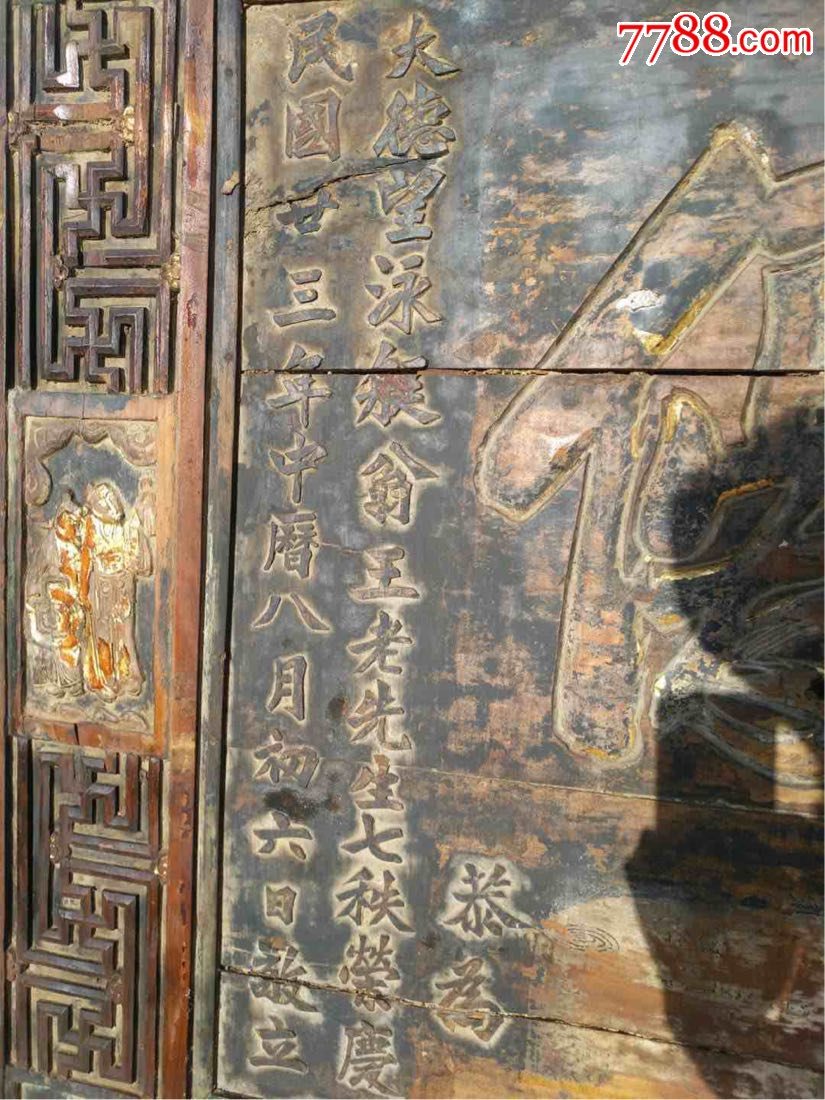 7788.com
恭為
大德望泳猴翁王老先生七秩榮慶
民國廿三年中曆八月初六日敬立